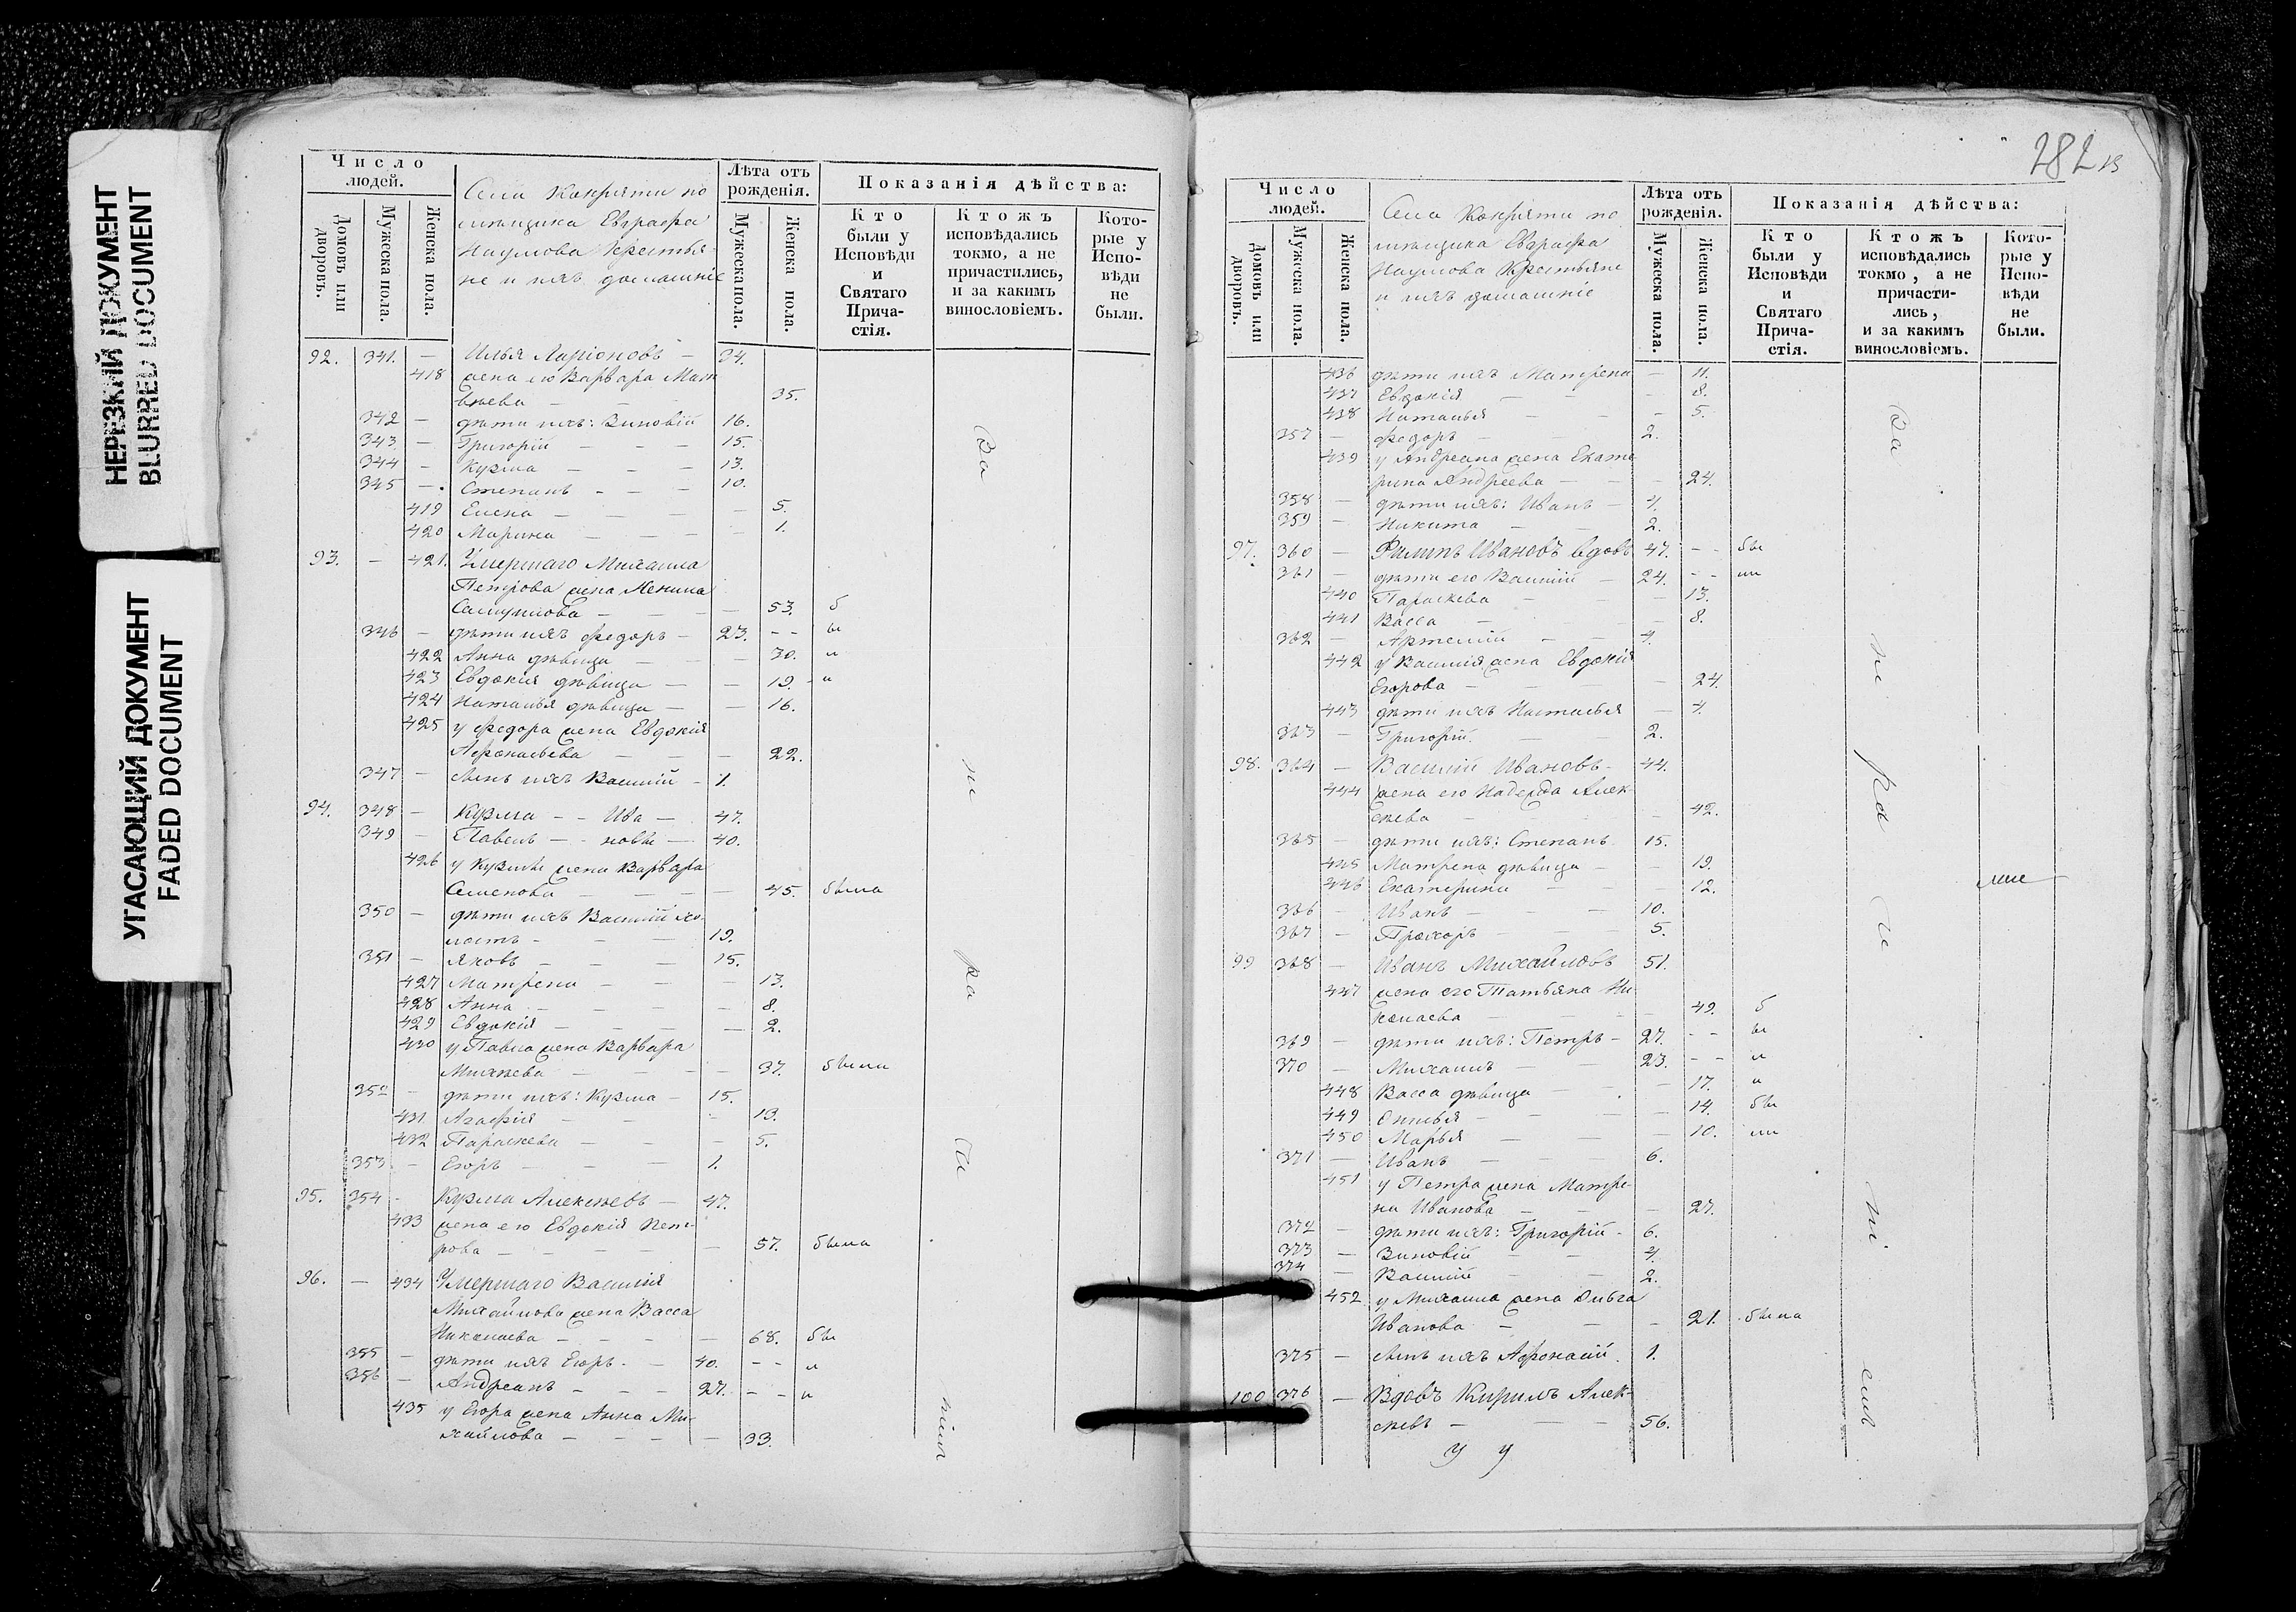 НЕРЕЗКИЙ ДОКУМЕНТ
BLURRED DOCUMENT
УГАСАЮЩИЙ ДОКУМЕНТ
FADED DOCUMENT
Число людей.
Домовъ или дворовъ.
Мужеска пола.
Женска пола.
Села по
мѣщика Евграфа
Наумова Крестья
не и ихъ домашніе
Лѣта отъ рожденія.
Мужеска пола.
Женска пола.
Показанія дѣйства:
Кто были у Исповѣди и Святаго Прича-стія.
Ктожъ исповѣдались токмо, а не причастились, и за какимъ винословіемъ.
Кото-рые у Испо-вѣди не были.
92. 341. — Илья Ларіоновъ — 34.
418 жена его Варвара Мат
вѣева — 35.
342 — дѣти ихъ: Зиновій 16.
343 — Григорій — — — 15.
344 — Кузма — — — 13.
345 — Степанъ — — — 10.
419 Елена — — — — 5.
420 Марина — — — 1.
93. — 421. Умершаго Михаила
Петрова жена
Самуилова — — — 53. б
346 — дѣти ихъ Федоръ — 23. - - ы
422 Анна дѣвица — — 30. л
423 Евдокія дѣвица — — 19. и
424 Наталья дѣвица — — 16.
425 у Федора жена Евдокія
Афонасьева — — — 22.
347 — сынъ ихъ Василій — 1.
94. 348 — Кузма - - Ива — 47.
349 — Павелъ - - новы — 40.
426 у Кузмы жена Варвара
Семенова — — — 45. была
350 — дѣти ихъ Василій хо-
лостъ — — — 19.
351 — Яковъ — — — 15.
427 Матрена — — — 13.
428 Анна — — — 8.
429 Евдокія — — — 2.
430 у Павла жена Варвара
Михѣева — — — 37. были
352 — дѣти ихъ: Кузма — 15.
431 Агафія — — — 13.
432 Параскева — — — 5.
353 — Егоръ — — — 1.
95. 354 - Кузма Алексѣевъ — 47.
433 жена его Евдокія Пет-
рова — — — — 57. была
96. — 434 Умершаго Василія
Михайлова жена Васса
Николаева — — — 68. бы
355 — дѣти ихъ Егоръ - — 40. - - л
356 — Андреанъ — — — 27. - - и
435 у Егора жена Анна Ми-
хайлова — — — — 33.
За
ні
ра
ті
ніи
282
Число людей.
Домовъ или дворовъ.
Мужеска пола.
Женска пола.
Села по
мѣщика Евграфа
Наумова Крестьяне
и ихъ домашніе
Лѣта отъ рожденія.
Мужеска пола.
Женска пола.
Показанія дѣйства:
Кто были у Исповѣди и Святаго Прича-стія.
Ктожъ исповѣдались токмо, а не причасти-лись, и за какимъ винословіемъ.
Кото-рые у Испо-вѣди не были.
436 дѣти ихъ Матрена — 11.
437 Евдокія — — — 8.
438 Наталья — — — 5.
357 — Федоръ — 2.
439 у Андреана жена Екате
рина Андреева — — — 24.
358 — дѣти ихъ: Иванъ — 4.
359 — Никита — — 2.
97. 360 — Филипъ Ивановъ вдовъ 47. - - бы
361 — дѣти его Василій — 24. - - ли
440 Параскева — — 13.
441 Васса — — 8.
362 — Артемій — — 4.
442 у Василія жена Евдокія
Егорова — — — 24.
443 дѣти ихъ Настасья — 4.
363 — Григорій — — 2.
98. 364 — Василій Ивановъ - 44.
444 жена его Надежда Алек-
сѣева — — — 42.
365 — дѣти ихъ: Степанъ 15.
445 Матрена дѣвица — — 19.
446 Екатерина — — 12.
366 — Иванъ — — — 10.
367 — Прохоръ — — 5.
99 368 — Иванъ Михайловъ 51.
447 жена его Татьяна Ни-
колаева — — — 49. б
369 — дѣти ихъ: Петръ — 27. - - ы
370 — Михаилъ — — 23. - - л
448 Васса дѣвица — — 17. и
449 — — — 14. бы
450 Марья — — — 10. ли
371 — Иванъ — — — 6.
451 у Петра жена Матре-
на Иванова — — — 27.
372 — дѣти ихъ: Григорій - 6.
373 — Зиновій — — 4.
374 — Василій — — 2.
452 у Михаила жена Ольга
Иванова — — — 21. была
375 — сынъ ихъ Афонасій. 1.
100 376 — Вдовъ Кирилъ Алек-
сѣевъ — — — 56.
У У
За